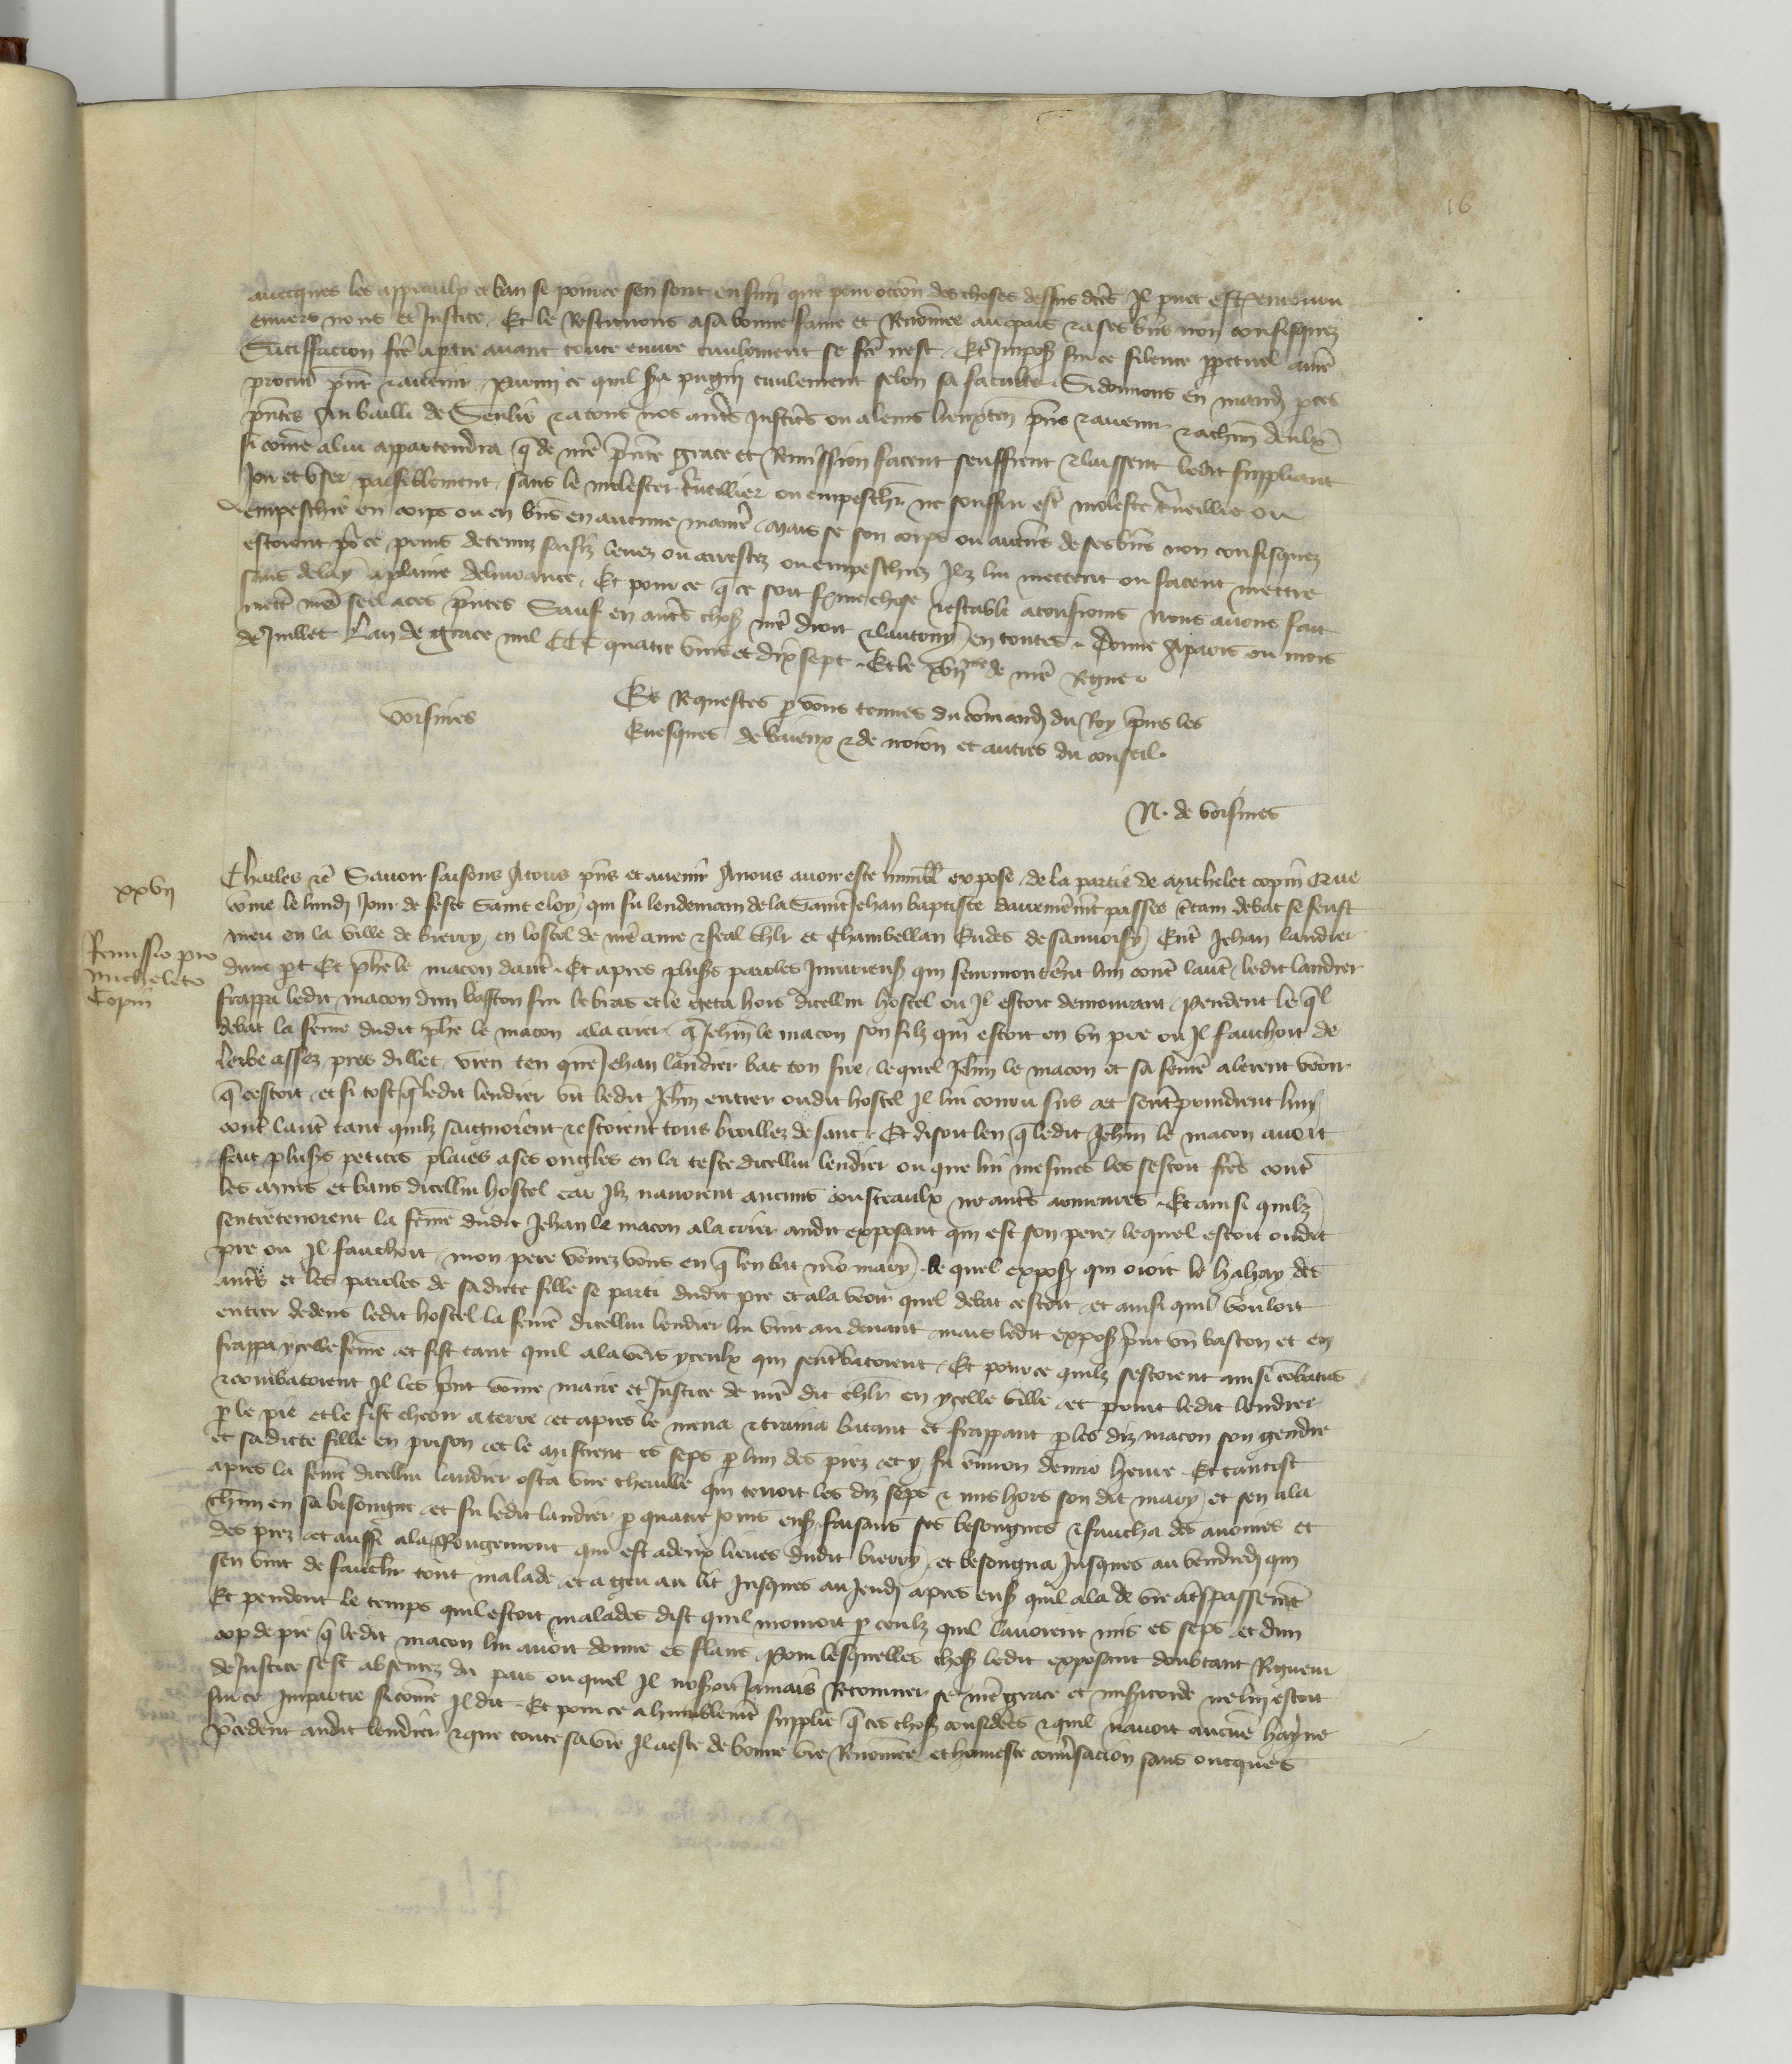 16
avecques les appeaulx et ban se pour ce sen sont ensuiz que pour occon des choses dessus dctes Il puet estre encouru
envers nous et Justice. Et le Restituons a sa bonne fame et Renomee au pais & a ses biens non confisquez
Satisfacion fcte a partie avant toute euvre civilement se fcte nest. Et Imposons sur ce silence ppetuel a nre
procur pnt & avenir. Parmi ce quil sera pugny civilement selon sa faculte. Si donnons en mand par ces
pntes Au bailli de Senlis & a tous nos autrs Justicrs ou a leurs lieuxten pns & avenir & a chun deulx
si come a lui appartendra q de nre pnte grace et Remission facent seuffrent & laissent ledit suppliant
Joir et user paisiblement sans le molester travillier ou empescher ne souffrir estre moleste traveillie ou
empeschie en corps ou en biens en aucune manie. Mais se son corps ou aucuns de ses biens non confisquez
estoient pr ce prins detenuz saisiz levez ou arrestez ou empeschiez Ilz lui mettent ou facent mettre
sans delay a plaine delivrance. Et pour ce q ce soit ferme chose & estable a tousjours Nous avons fait
mettre nre seel a ces pntes Sauf en autrs choses nre droit & lautruy en toutes. Donne A paris ou mois
de Juillet Lan de grace mil CCC quatre vins et dix sept. Et le xvije de nre Regne.
Es Requestes p vous tenues du comand du Roy pns les
Evesques de baieux & de noion et autres du conseil.
Voisines
N. de voisines
xxvij
Remissio pro
Micheleto
Copin
Charles etc Savoir faisons A tous pns et avenir A nous avoir este humblement expose de la partie de Michelet copin Que
come le lundi Jour de feste Saint eloy qui fu lendemain de la Saint Jehan baptiste derrenierement passee ctain debat se feust
meu en la ville de bierry en lostel de nre ame & feal chlr et Chambellan Eudes de savoisy Entre Jehan landier
dune pt Et phe le macon dautre. Et apres plusrs paroles Injurieuses qui senmonterent lun contre lautre ledit landier
frappa ledit macon dun baston sur le bras et le geta hors dicellui hostel ou Il estoit demourant. Pendent le ql
debat la feme dudit phe le macon ala crier q Jehn le macon son filz qui estoit en un pre ou Il fauchoit de
lerbe assez pres dillec. Vien ten que Jehan landier bat ton pere. Lequel Jehn le macon et sa feme alerent veoir
q cestoit et si tost q ledit lendier vit ledit Jehn entrer oudit hostel Il lui couru sus et sentreprindrent lun
contre lautre tant quilz saignerent & estoient tous broillez de sanc. Et disoit len q ledit Jehn le macon avoit
fait plusrs petites plaies a ses ongles en la teste dicellui lendier ou que lui mesmes les sestoit fctes contre
les murs et bans dicellui hostel car Ilz navoient aucuns cousteaulx ne autrs armeures. Et ainsi quilz
sentretenoient la feme dudit Jehan le macon ala crier audit exposant qui est son pere lequel estoit oudit
pre ou Il fauchoit. mon pere venez vous en q len bat mon mary. Le quel expos qui oioit le hahay des
autrs et les paroles de sa dicte fille se parti dudit pre et ala veoir quel debat cestoit et ainsi quil vouloit
entrer dedens ledit hostel la feme dicellui lendier lui vint au devant mais ledit expos print un baston et en
frappa ycelle feme et fist tant quil ala vers yceulx qui sentrebatoient. Et pour ce quilz sestoient ainsi cobatus
& combatoient Il les print come maire et Justice de nre dit chlr en ycelle ville et print ledit lendier
p le pie et le fist cheoir a terre et apres le mena & traina batant et frappant p les diz macon son gendre
et sa dicte fille en prison et le mistrent es seps p lun des piez et y fu environ demie heure. Et tantost
apres la feme dicellui landier osta une cheville qui tenoit les diz seps & mis hors son dit mary et sen ala
chun en sa besoingne et fu ledit landier p quatre jours ensuivant faisans ses besongnes & faucha des avoines et
des prez et aussi ala a Rougemont qui est a deux lieues dudit bierry et besongna Jusques au vendredi qui
sen vint de faucher tout malade et a geu au lit Jusques au Jeudi apres ensuivant quil ala de vie a trespassement
Et pendent le temps quil estoit malades dist quil mouroit p ceulx quil lavoient mis es seps et dun
cop de pie q ledit macon lui avoit donne es flans. Pour lesquelles choses ledit exposant doubtant Rigueur
de Justice sest absentez du pais ou quel Il noseroit Jamais Retourner se nre grace et misericorde ne lui estoit
sur ce Impartie si come Il dit. Et pour ce a humblement supplie q ces choses considerees & quil navoit aucune hayne
precedent audit lendier & que toute sa vie Il a este de bonne vie Renomee et honneste conversacion sans oncques